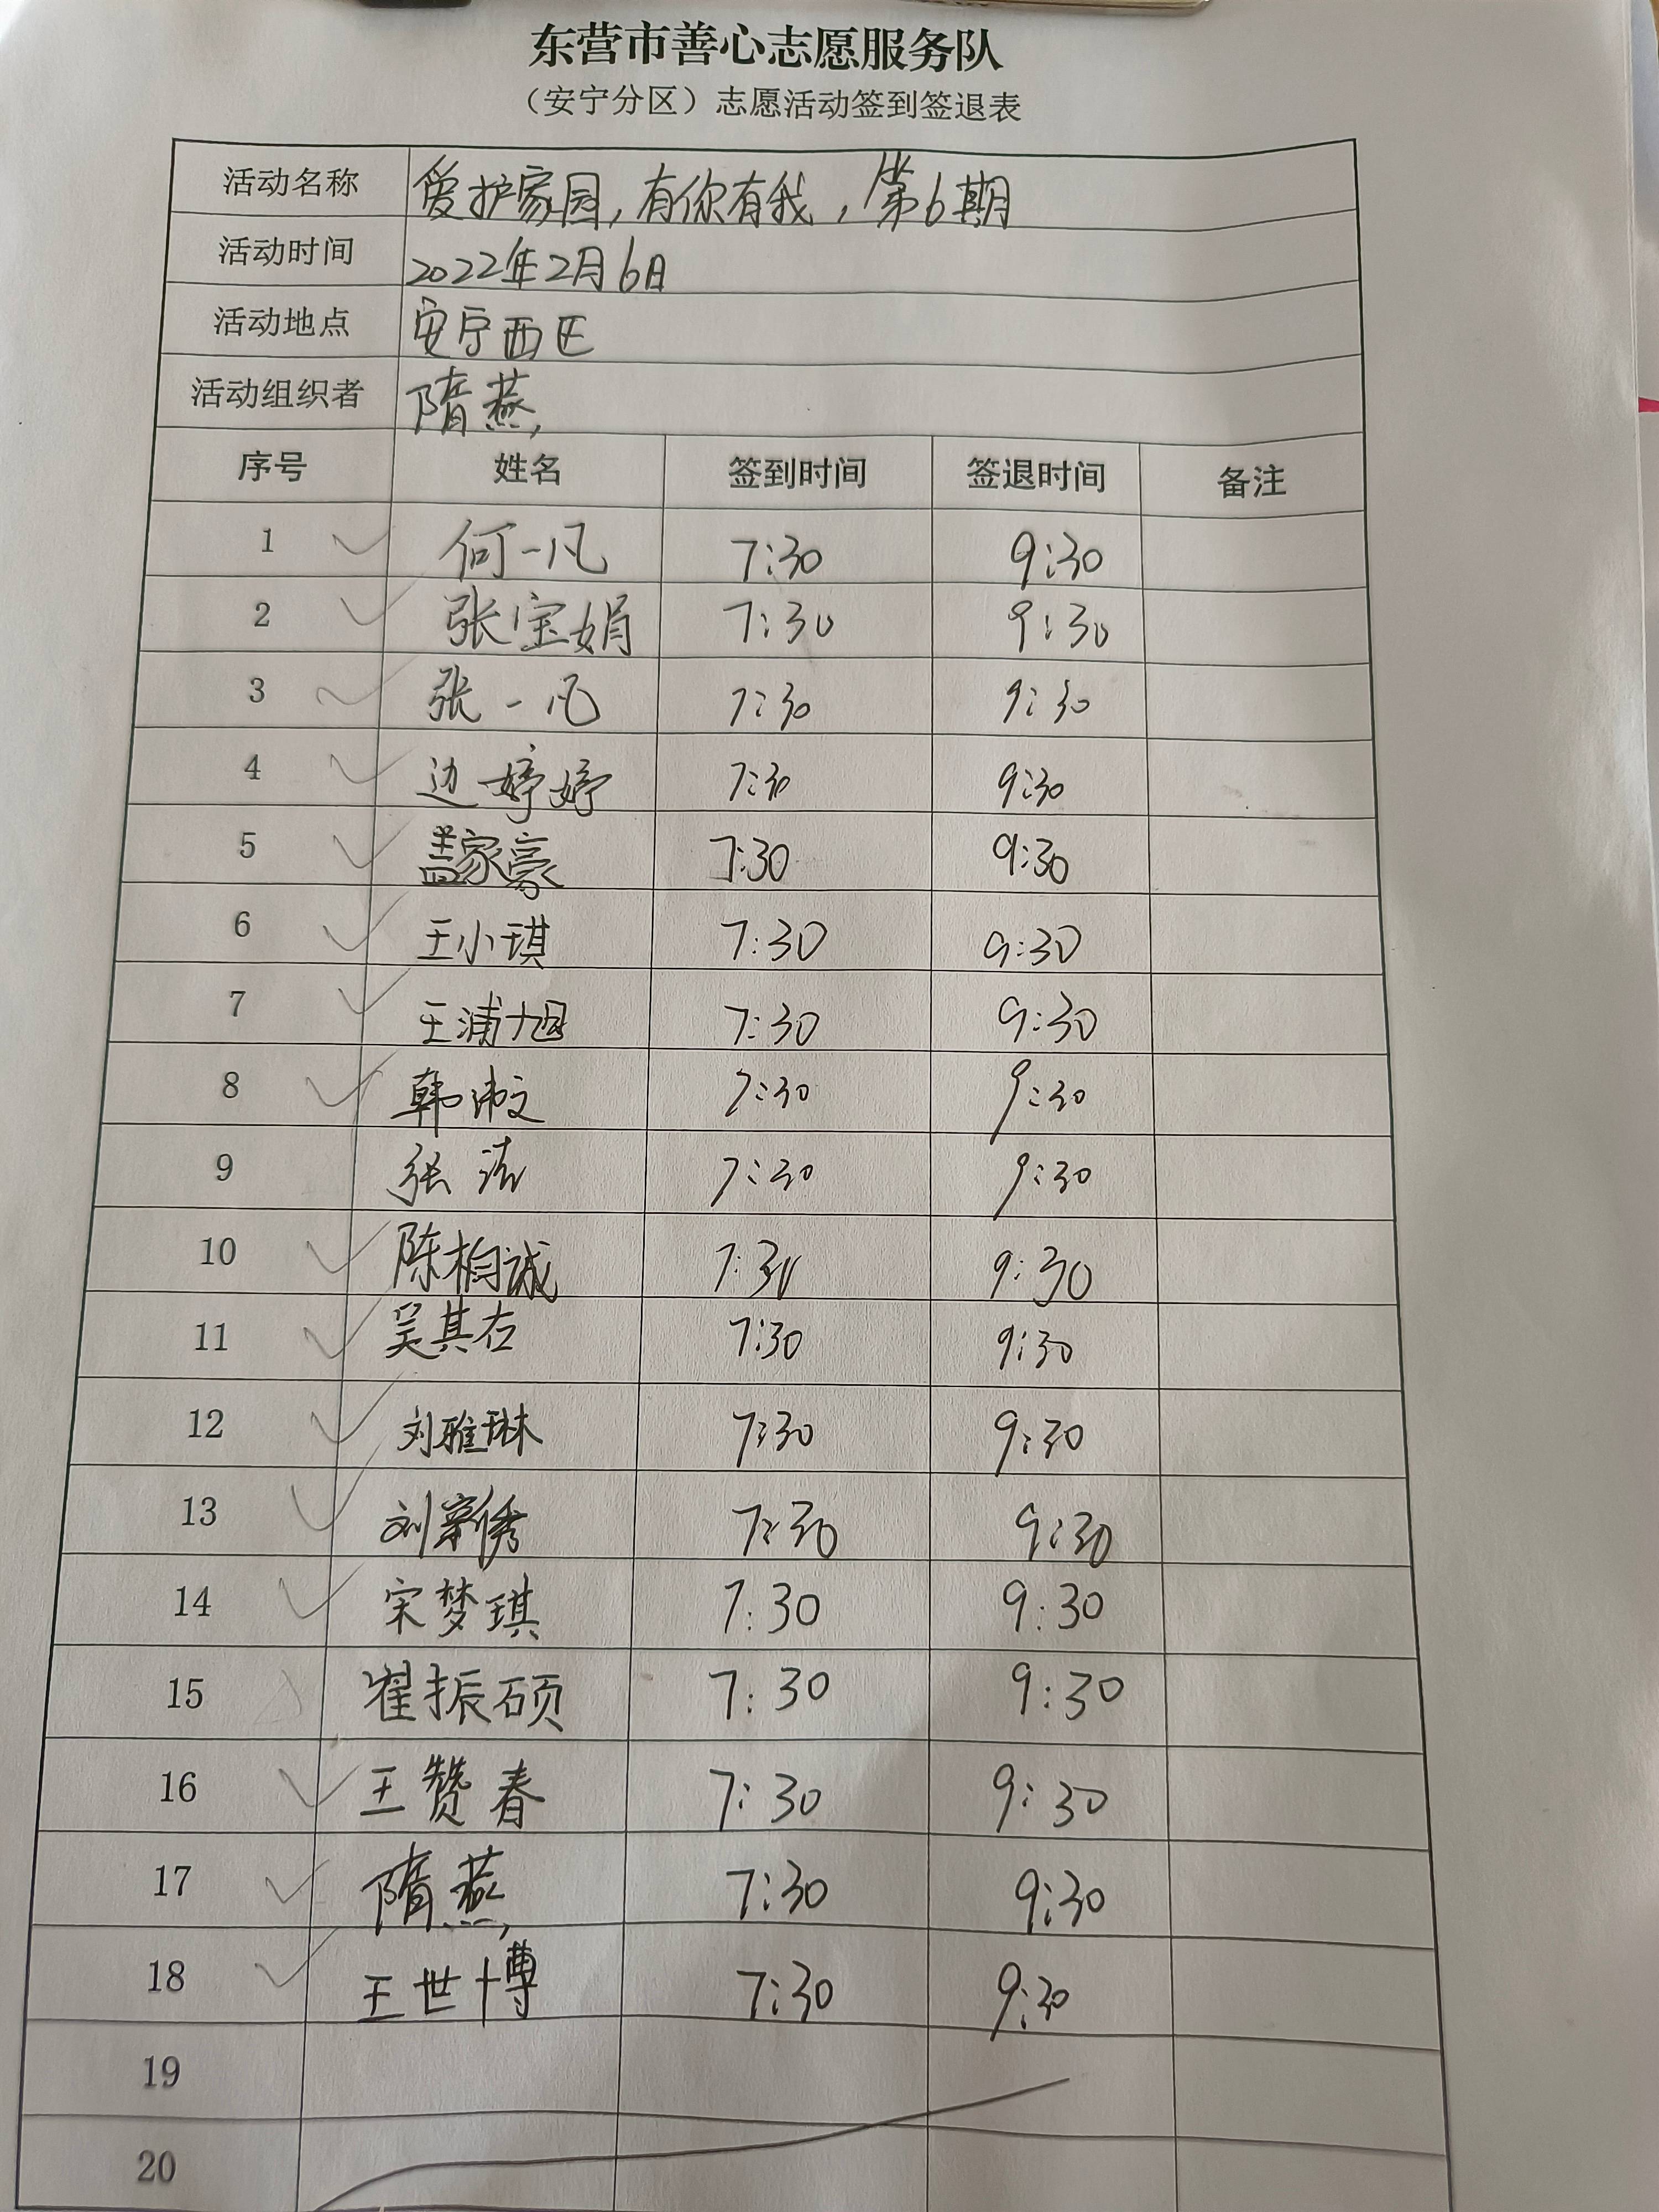 东营市善心志愿服务队
（安宁分区）志愿活动签到签退表
活动名称 爱护家园，有你有我，第6期
活动时间 2022年2月6日
活动地点 安宁西区
活动组织者 隋燕
序号 姓名 签到时间 签退时间 备注
1 何一凡 7:30 9:30
2 张宝娟 7:30 9:30
3 张一凡 7:30 9:30
4 边婷婷 7:30 9:30
5 盖家豪 7:30 9:30
6 王小琪 7:30 9:30
7 王浦旭 7:30 9:30
8 韩 7:30 9:30
9 张 7:30 9:30
10 陈柏诚 7:30 9:30
11 吴其右 7:30 9:30
12 刘雅琳 7:30 9:30
13 刘 7:30 9:30
14 宋梦琪 7:30 9:30
15 翟振硕 7:30 9:30
16 王赞春 7:30 9:30
17 隋燕 7:30 9:30
18 王世博 7:30 9:30
19
20